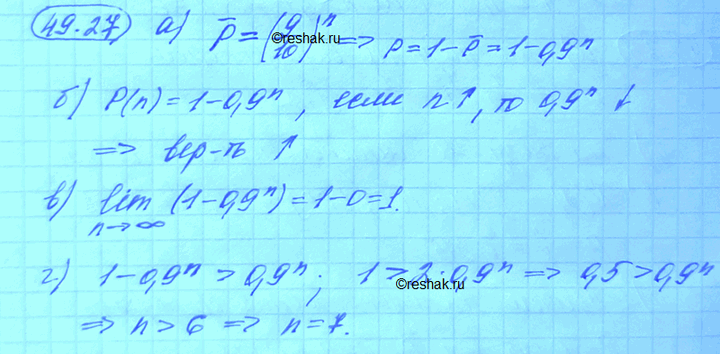 49.27) а) p̄ = (9/10)ⁿ => p = 1 - p̄ = 1 - 0,9ⁿ
©reshak.ru
б) P(n) = 1 - 0,9ⁿ, если n ↑, то 0,9ⁿ ↓
=> вер-ть ↑
в) lim n→∞ (1 - 0,9ⁿ) = 1 - 0 = 1.
г) 1 - 0,9ⁿ > 0,9ⁿ; 1 > 2·0,9ⁿ => 0,5 > 0,9ⁿ
©reshak.ru
=> n > 6 => n = 7.